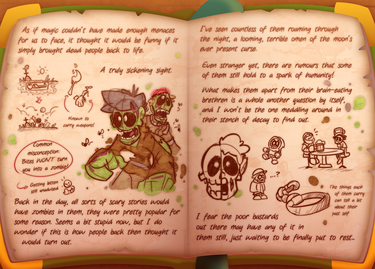 As if magic couldn't have made enough menaces
for us to face, it thought it would be funny if it
simply brought dead people back to life.
A truly sickening sight.
Known to
carry weapons!
Common
misconception:
Bites WON'T turn
you into a zombie!
Getting bitten
still inadvisable
Back in the day, all sorts of scary stories would
have zombies in them, they were pretty popular for
some reason. Seems a bit stupid now, but I do
wonder if this is how people back then thought it
would turn out.
I've seen countless of them roaming through
the night, a looming, terrible omen of the moon's
ever present curse.
Even stranger yet, there are rumours that some
of them still hold to a spark of humanity!
What makes them apart from their brain-eating
brethren is a whole another question by itself,
and I won't be the one meddling around in
their stench of decay to find out.
...?
The things each
of them carry
can tell a lot
about their
past self
I fear the poor bastards
out there may have any of it in
them still, just waiting to be finally put to rest...